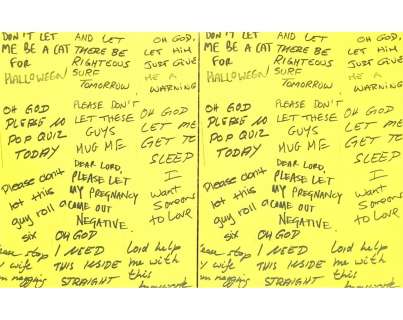 DON'T LET
ME BE A CAT
FOR
HALLOWEEN!
AND LET
THERE BE
RIGHTEOUS
SURF
TOMORROW.
OH GOD,
LET HIM
JUST GIVE
ME A
WARNING
OH GOD
PLEASE NO
POP QUIZ
TODAY
PLEASE DON'T
LET THESE
GUYS
MUG ME
OH GOD
LET ME
GET TO
SLEEP
Please don't
let this
guy roll a
six
DEAR LORD,
PLEASE LET
MY PREGNANCY
COME OUT
NEGATIVE.
I
want
Someone
to LOVE
stop
wife
nagging
OH GOD
I NEED
THIS INSIDE
STRAIGHT
Lord help
me with
this
homework
DON'T LET
ME BE A CAT
FOR
HALLOWEEN!
AND LET
THERE BE
RIGHTEOUS
SURF
TOMORROW.
OH GOD,
LET HIM
JUST GIVE
ME A
WARNING
OH GOD
PLEASE NO
POP QUIZ
TODAY
PLEASE DON'T
LET THESE
GUYS
MUG ME
OH GOD
LET ME
GET TO
SLEEP
Please don't
let this
guy roll a
six
DEAR LORD,
PLEASE LET
MY PREGNANCY
COME OUT
NEGATIVE.
I
want
Someone
to LOVE
stop
wife
nagging
OH GOD
I NEED
THIS INSIDE
STRAIGHT
Lord help
me with
this
homework